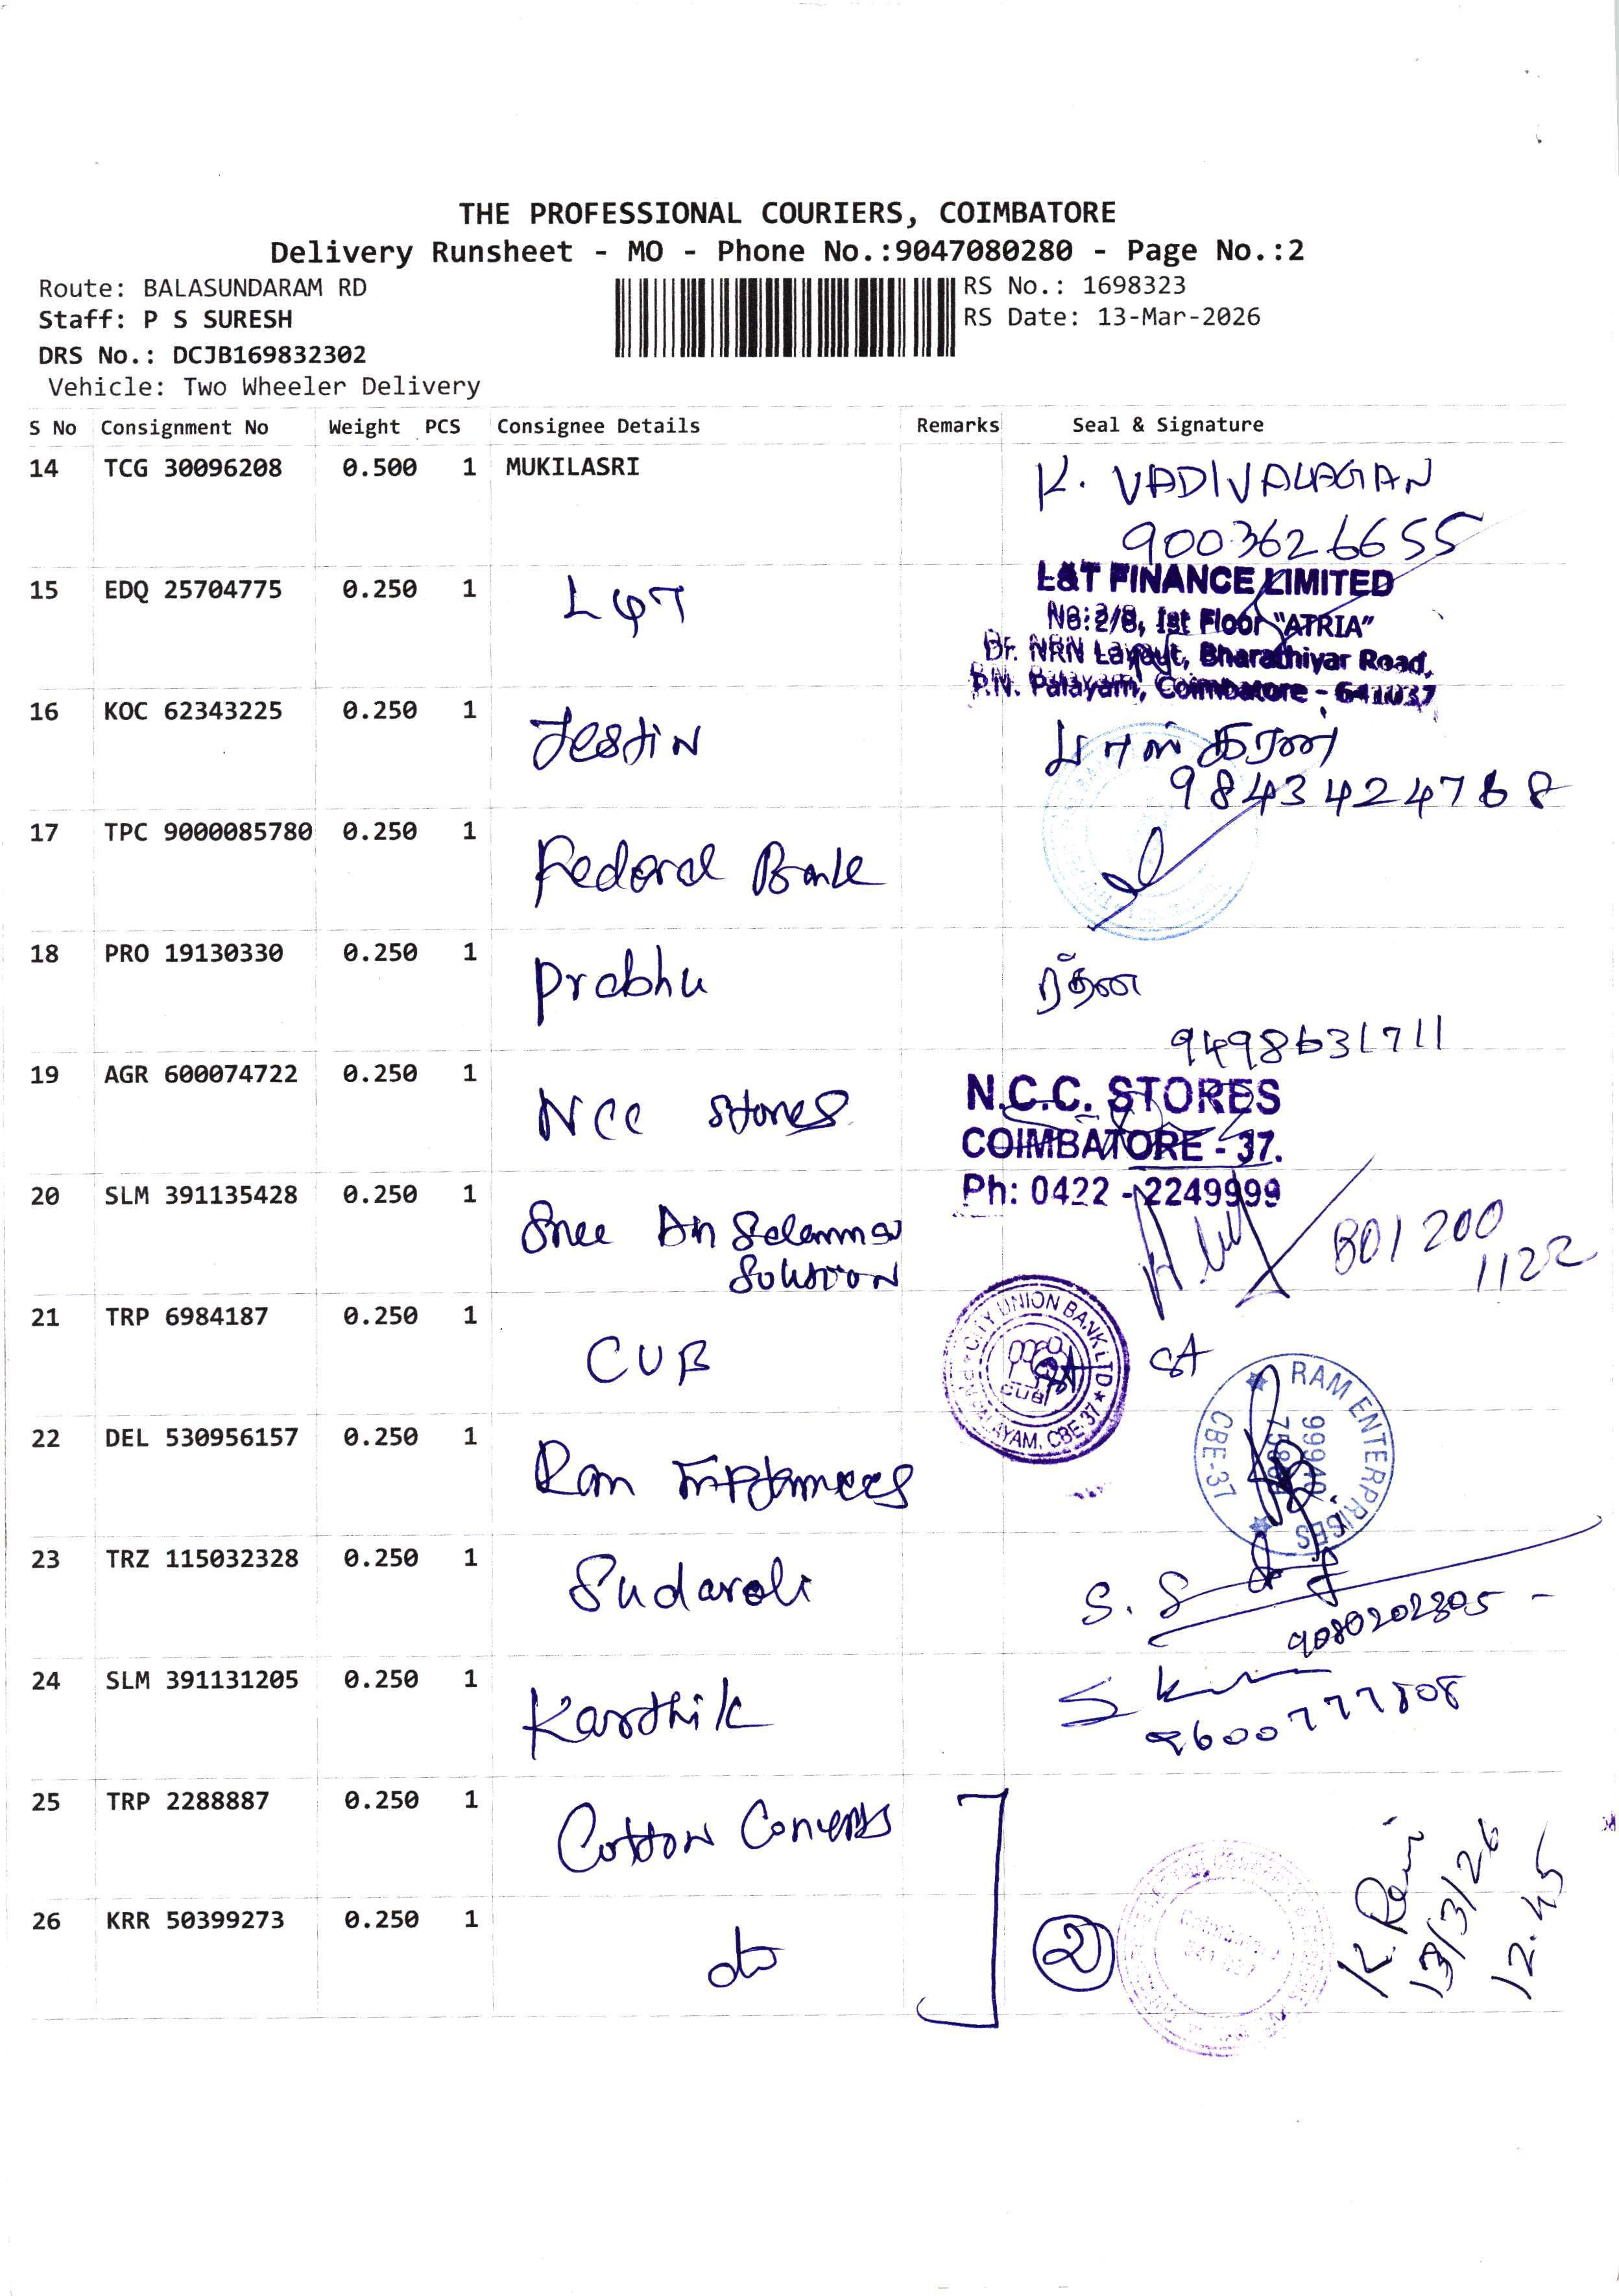 THE PROFESSIONAL COURIERS, COIMBATORE
Delivery Runsheet - MO - Phone No.:9047080280 - Page No.:2
Route: BALASUNDARAM RD
Staff: P S SURESH
DRS No.: DCJB169832302
Vehicle: Two Wheeler Delivery
RS No.: 1698323
RS Date: 13-Mar-2026
S No Consignment No Weight PCS Consignee Details Remarks Seal & Signature
14 TCG 30096208 0.500 1 MUKILASRI K. VADIVALAGAN
9003626655
15 EDQ 25704775 0.250 1 L&T
L&T FINANCE LIMITED
No:2/8, Ist Floor "ATRIA"
Dr. NRN Layout, Bharathiyar Road,
P.N. Palayam, Coimbatore - 641037
16 KOC 62343225 0.250 1 Jestin
9843424768
17 TPC 9000085780 0.250 1 Federal Bank
18 PRO 19130330 0.250 1 Prabhu
9498631711
19 AGR 600074722 0.250 1 NCC Stores
N.C.C. STORES
COIMBATORE - 37.
Ph: 0422 - 2249999
20 SLM 391135428 0.250 1 Sree
Solution
801200
1122
21 TRP 6984187 0.250 1 CUB
CITY UNION BANK LTD
CUB
PALAYAM, CBE-37
22 DEL 530956157 0.250 1 Ram
RAM ENTERPRISES
99940
CBE-37
23 TRZ 115032328 0.250 1 S. S
9080202305
24 SLM 391131205 0.250 1 Karthik S
9600777808
25 TRP 2288887 0.250 1 Cotton
26 KRR 50399273 0.250 1 do
2
K. Ravi
13/3/26
12.45